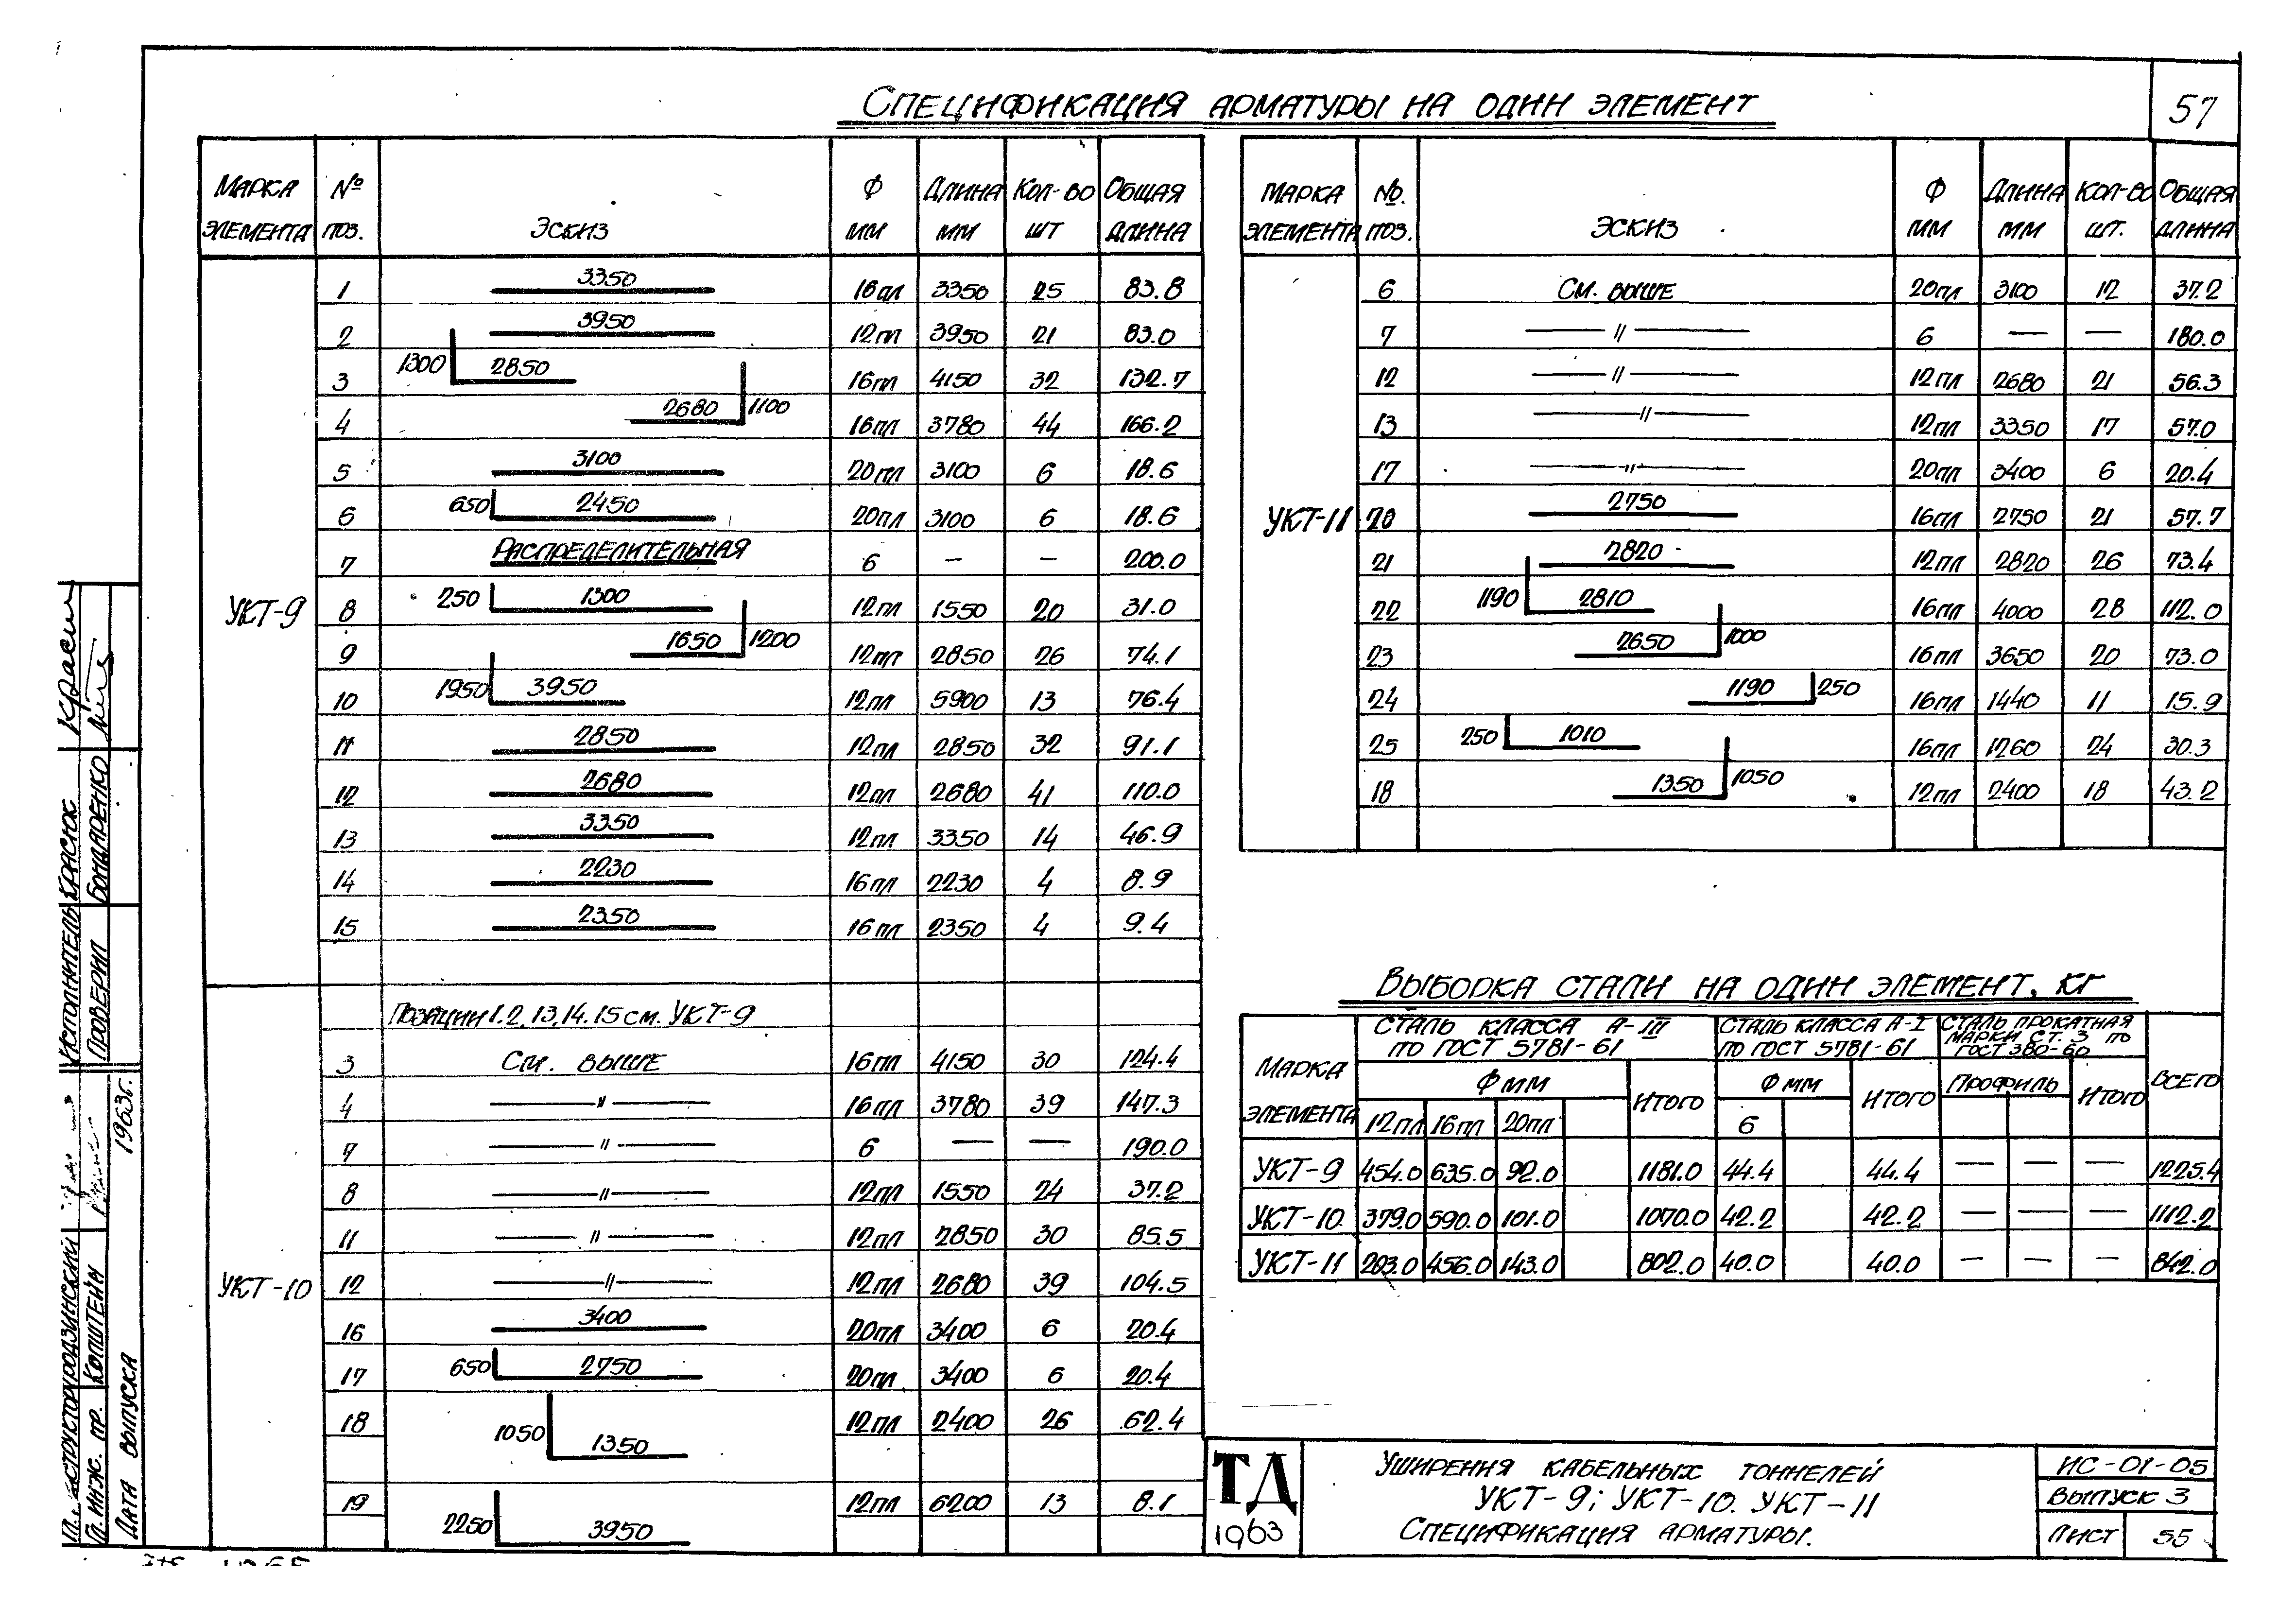 57
Спецификация арматуры на один элемент
Марка элемента № поз. Эскиз Ф мм Длина мм Кол-во шт Общая длина
УКТ-9
1 3350 16пл 3350 25 83.8
2 3950 12пл 3950 21 83.0
3 1300 2850 16пл 4150 32 132.7
4 2680 1100 16пл 3780 44 166.2
5 3100 20пл 3100 6 18.6
6 650 2450 20пл 3100 6 18.6
7 Распределительная 6 — — 200.0
8 250 1300 12пл 1550 20 31.0
9 1650 1200 12пл 2850 26 74.1
10 1950 3950 12пл 5900 13 76.4
11 2850 12пл 2850 32 91.1
12 2680 12пл 2680 41 110.0
13 3350 12пл 3350 14 46.9
14 2230 16пл 2230 4 8.9
15 2350 16пл 2350 4 9.4
УКТ-10
Позиции 1.2, 13, 14. 15 см. УКТ-9
3 См. выше 16пл 4150 30 124.4
4 — " — 16пл 3780 39 147.3
7 — " — 6 — — 190.0
8 — " — 12пл 1550 24 37.2
11 — " — 12пл 2850 30 85.5
12 — " — 12пл 2680 39 104.5
16 3400 20пл 3400 6 20.4
17 650 2750 20пл 3400 6 20.4
18 1050 1350 12пл 2400 26 62.4
19 2250 3950 12пл 6200 13 8.1
Марка элемента №. поз. Эскиз Ф мм Длина мм Кол-во шт. Общая длина
УКТ-11
6 См. выше 20пл 3100 12 37.2
7 — " — 6 — — 180.0
12 — " — 12пл 2680 21 56.3
13 — " — 12пл 3350 17 57.0
17 — " — 20пл 3400 6 20.4
20 2750 16пл 2750 21 57.7
21 2820 12пл 2820 26 73.4
22 1190 2810 16пл 4000 28 112.0
23 2650 1000 16пл 3650 20 73.0
24 1190 250 16пл 1440 11 15.9
25 250 1010 16пл 1260 24 30.3
18 1350 1050 12пл 2400 18 43.2
Выборка стали на один элемент, кг
Марка элемента
Сталь класса А-III по ГОСТ 5781-61
Сталь класса А-I по ГОСТ 5781-61
Сталь прокатная марки Ст. 3 по ГОСТ 380-60
Всего
Ф мм Итого Ф мм Итого Профиль Итого
12пл 16пл 20пл 6
УКТ-9 454.0 635.0 92.0 1181.0 44.4 44.4 — — — 1225.4
УКТ-10 379.0 590.0 101.0 1070.0 42.2 42.2 — — — 1112.2
УКТ-11 203.0 456.0 143.0 802.0 40.0 40.0 — — — 842.0
ТД
1963
Уширения кабельных тоннелей
УКТ-9; УКТ-10. УКТ-11
Спецификация арматуры.
ИС-01-05
Выпуск 3
Лист 55
Исполнитель Красюк
Проверил Бондаренко
Гл. инж. пр. Копштейн
Дата выпуска 1963г.